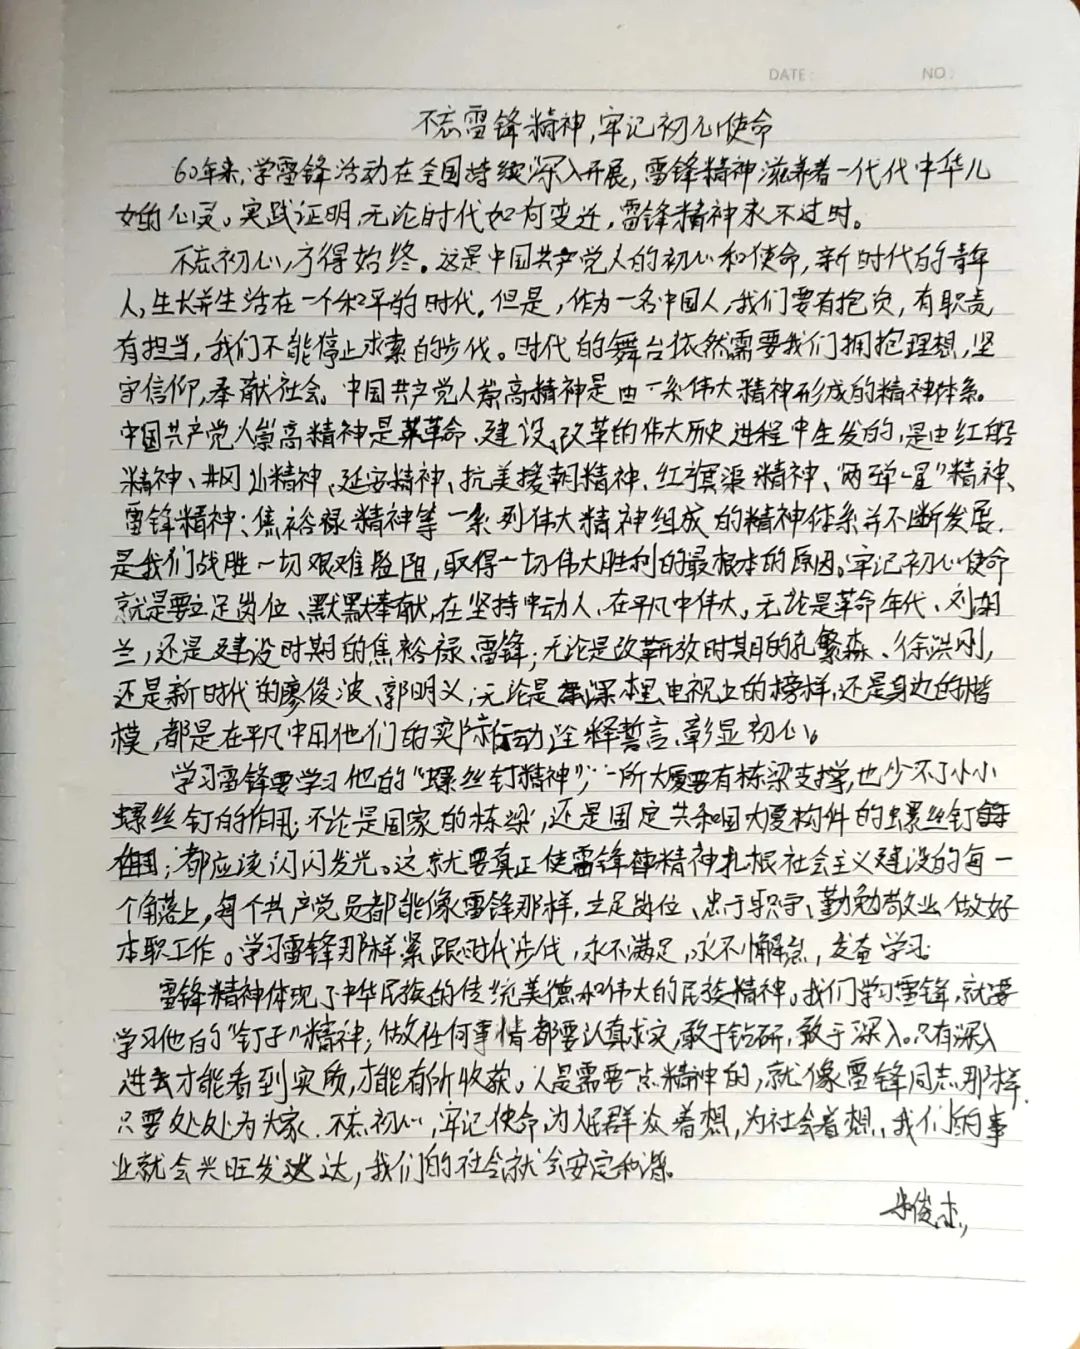 DATE: NO:
不忘雷锋精神,牢记初心使命
60年来,学雷锋活动在全国持续深入开展,雷锋精神滋养着一代代中华儿
女的心灵。实践证明,无论时代如何变迁,雷锋精神永不过时。
不忘初心,方得始终。这是中国共产党人的初心和使命,新时代的青年
人,生长并生活在一个和平的时代。但是,作为一名中国人,我们要有抱负,有职责
有担当,我们不能停止求索的步伐。时代的舞台依然需要我们拥抱理想,坚
守信仰,奉献社会。中国共产党人崇高精神是由一条伟大精神形成的精神体系。
中国共产党人崇高精神是革命、建设、改革的伟大历史进程中生发的,是由红船
精神、井冈山精神、延安精神、抗美援朝精神、红旗渠精神、“两弹一星”精神、
雷锋精神;焦裕禄精神等一系列伟大精神组成的精神体系并不断发展.
是我们战胜一切艰难险阻,取得一切伟大胜利的最根本的原因。牢记初心使命
就是要立足岗位、默默奉献,在坚持中动人、在平凡中伟大。无论是革命年代、刘胡
兰,还是建设时期的焦裕禄、雷锋;无论是改革开放时期的孔繁森、徐洪刚,
还是新时代的廖俊波、郭明义;无论是课本里、电视上的榜样,还是身边的楷
模,都是在平凡中用他们的实际行动诠释誓言、彰显初心。
学习雷锋要学习他的“螺丝钉精神”;一所大厦要有栋梁支撑,也少不了小小
螺丝钉的作用;不论是国家的栋梁,还是固定共和国大厦构件的螺丝钉
;都应该闪闪发光。这就要真正使雷锋精神扎根社会主义建设的每一
个角落上,每个共产党员都能像雷锋那样,立足岗位、忠于职守、勤勉敬业做好
本职工作。学习雷锋那样紧跟时代步伐,永不满足,永不懈怠,发奋学习.
雷锋精神体现了中华民族的传统美德和伟大的民族精神。我们学习雷锋,就要
学习他的“钉子”精神,做任何事情都要认真求实,敢于钻研,敢于深入。只有深入
进去才能看到实质,才能有所收获。人是需要一点精神的,就像雷锋同志那样.
只要处处为大家.不忘初心,牢记使命,为人民群众着想,为社会着想,我们的事
业就会兴旺发达,我们的社会就会安定和谐。
朱俊杰